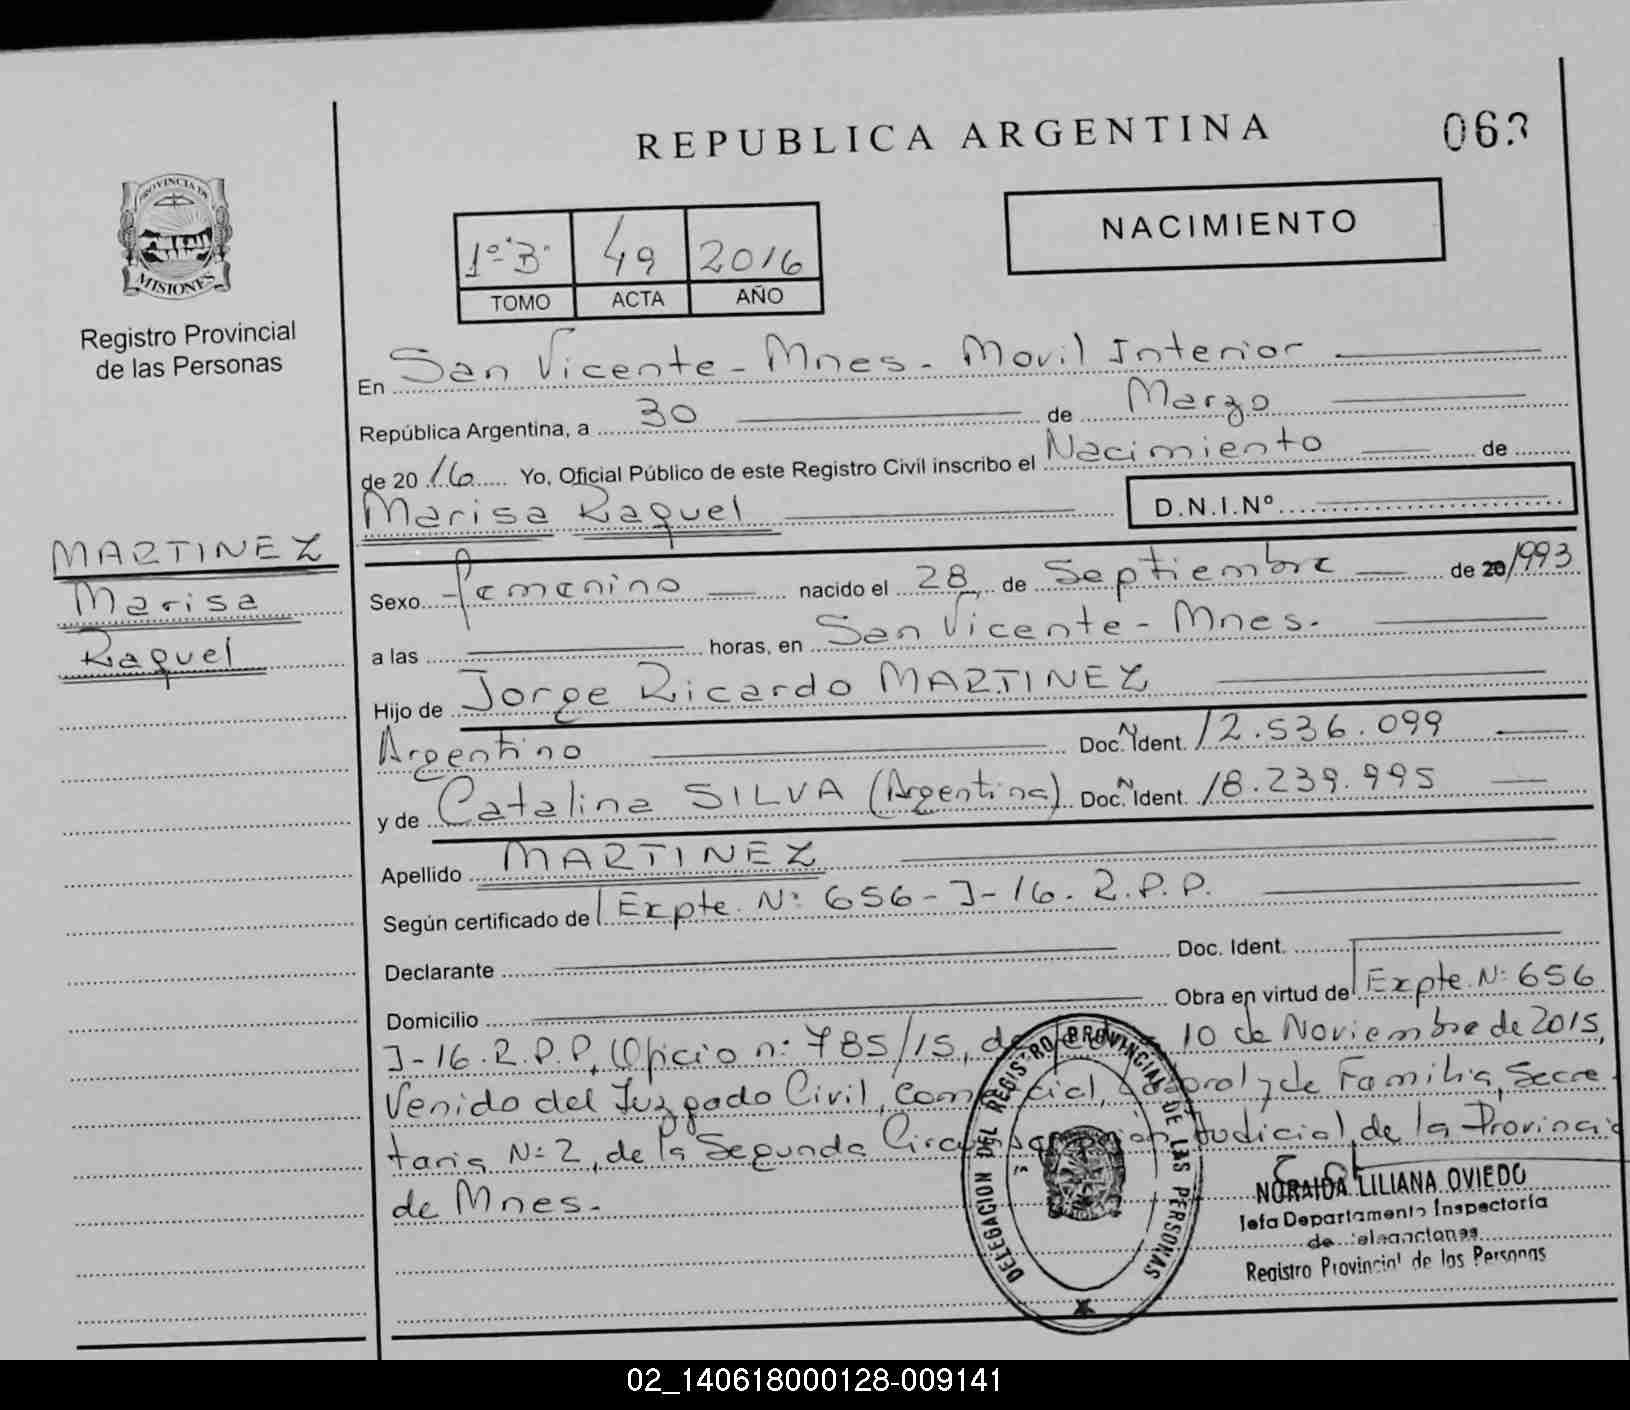 REPUBLICA ARGENTINA
06
PROVINCIA DE
MISIONES
Registro Provincial
de las Personas
NACIMIENTO
1º "B" 49 2016
TOMO ACTA AÑO
En San Vicente - Mnes - Movil Interior
República Argentina, a 30 de Marzo
de 20 16 Yo, Oficial Público de este Registro Civil inscribo el Nacimiento de
Marisa Raquel D.N.I.Nº
MARTINEZ
Marisa
Raquel
Sexo femenino nacido el 28 de Septiembre de 20 1993
a las horas, en San Vicente - Mnes.
Hijo de Jorge Ricardo MARTINEZ
Argentino Doc. N Ident. 12.536.099
y de Catalina SILVA (Argentina) Doc. N Ident. 18.239.995
Apellido MARTINEZ
Según certificado de Expte. Nº 656-J-16. R.P.P.
Declarante Doc. Ident.
Domicilio Obra en virtud de Expte. Nº 656
J-16.R.P.P, Oficio nº 785/15, de 10 de Noviembre de 2015,
Venido del Juzgado Civil, Comercial, Laboral y de Familia, Secre
taria Nº 2, de la Segunda Circunscripcion Judicial, de la Provincia
de Mnes.
DELEGACION DEL REGISTRO PROVINCIAL DE LAS PERSONAS
NORAIDA LILIANA OVIEDO
Jefa Departamento Inspectoría
de Delegaciones
Registro Provincial de las Personas
02_140618000128-009141